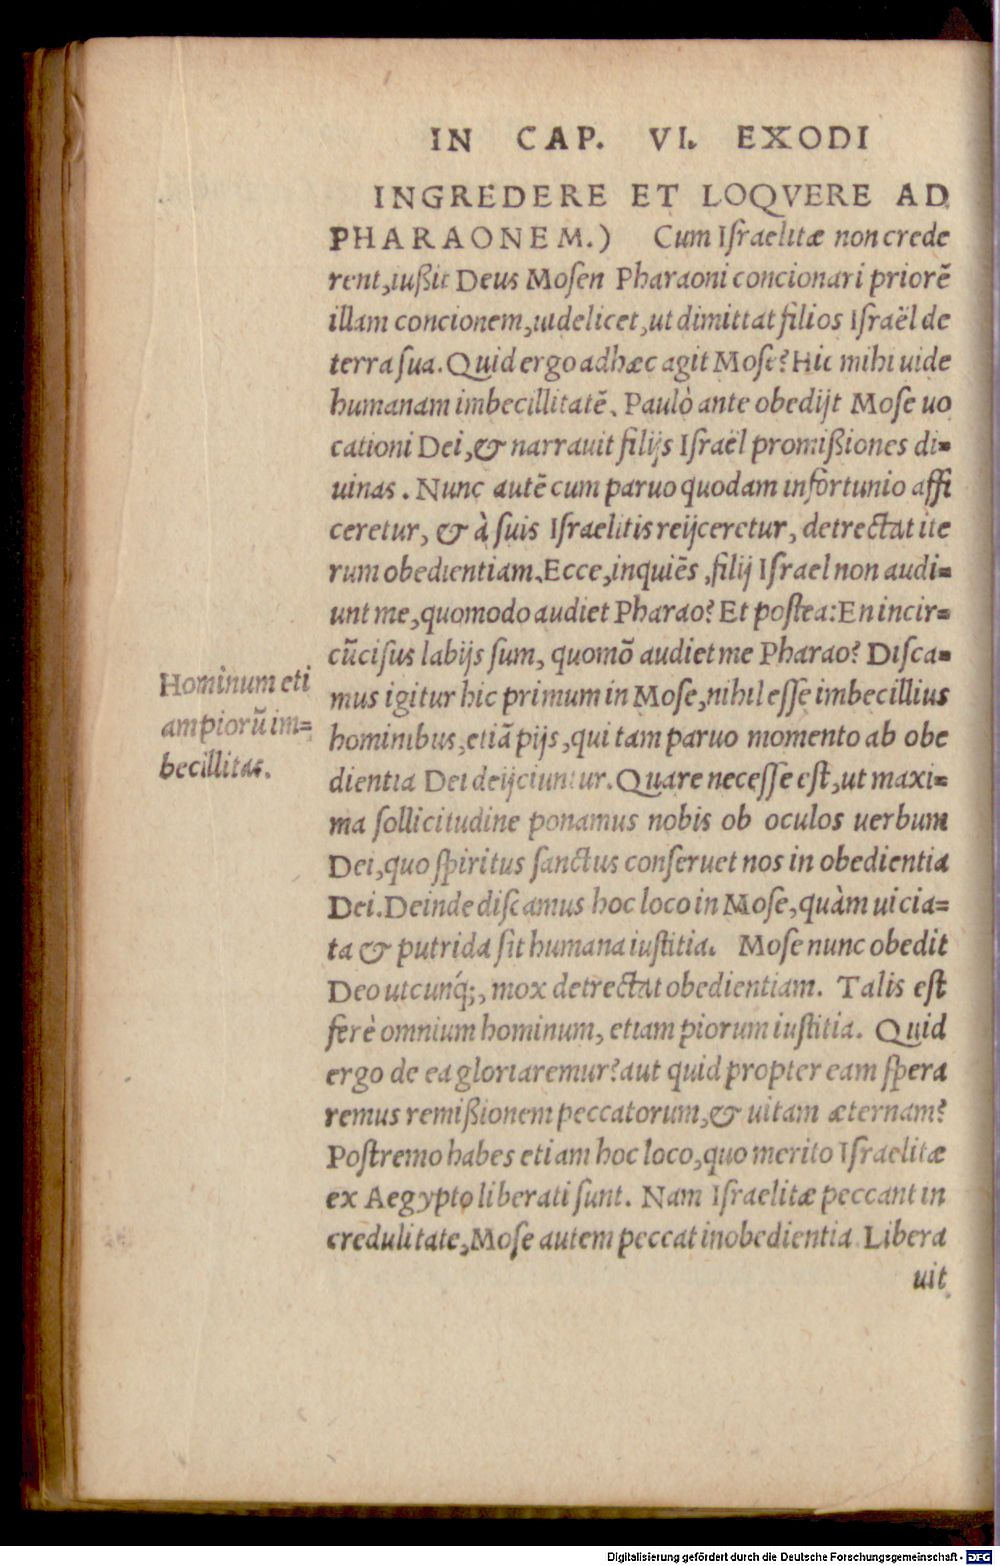 IN CAP. VI. EXODI
INGREDERE ET LOQVERE AD
PHARAONEM.) Cum Iſraelitæ non crede
rent, iußit Deus Moſen Pharaoni concionari priorē
illam concionem, uidelicet, ut dimittat filios Iſraël de
terra ſua. Quid ergo ad hæc agit Moſe? Hic mihi uide
humanam imbecillitatē. Paulò ante obedijt Moſe uo
cationi Dei, & narrauit filijs Iſraël promißiones di⸗
uinas. Nunc autē cum paruo quodam infortunio affi
ceretur, & à ſuis Iſraelitis reijceretur, detrectat ite
rum obedientiam. Ecce, inquiēs, filij Iſrael non audi⸗
unt me, quomodo audiet Pharao? Et poſtea: En incir⸗
cūciſus labijs ſum, quomō audiet me Pharao? Diſca⸗
mus igitur hic primum in Moſe, nihil eſſe imbecillius
hominibus, etiā pijs, qui tam paruo momento ab obe
dientia Dei deijciuntur. Quare neceſſe eſt, ut maxi⸗
ma ſollicitudine ponamus nobis ob oculos uerbum
Dei, quo ſpiritus ſanctus conſeruet nos in obedientia
Dei. Deinde diſcamus hoc loco in Moſe, quàm uicia⸗
ta & putrida ſit humana iuſtitia. Moſe nunc obedit
Deo utcunq́;, mox detrectat obedientiam. Talis eſt
ferè omnium hominum, etiam piorum iuſtitia. Quid
ergo de ea gloriaremur? aut quid propter eam ſpera
remus remißionem peccatorum, & uitam æternam?
Poſtremo habes etiam hoc loco, quo merito Iſraelitæ
ex Aegypto liberati ſunt. Nam Iſraelitæ peccant in
credulitate, Moſe autem peccat inobedientia. Libera
uit
Hominum eti
am piorū im⸗
becillitas.
Digitalisierung gefördert durch die Deutsche Forschungsgemeinschaft - DFG